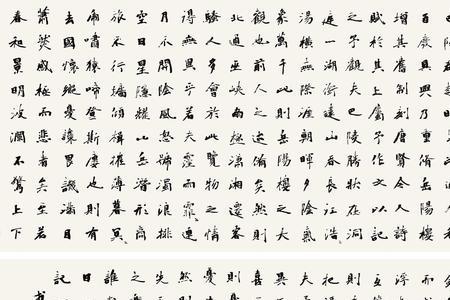 百廢具興乃重脩岳陽樓
增其舊制刻唐賢今人詩
賦於其上屬予作文以記
之予觀夫巴陵勝狀在洞
庭一湖銜遠山吞長江浩
湯橫無際涯朝暉夕陰氣
象萬千此則岳陽樓之大
觀也前人之述備矣然則
北通巫峽南極瀟湘遷客
騷人多會於此覽物之情
得無異乎若夫霪雨霏連
月不開陰風怒號濁浪排
空日星隱耀山岳潛形商
旅不行檣傾楫摧薄暮冥
虎嘯猿啼登斯樓也則有
去國懷鄉憂讒畏譏滿目
蕭然感極而悲者矣至若
春和景明波瀾不驚上下
而
浮
互
則
把
夫
異
喜
則
憂
然
先
之
誰
日
記